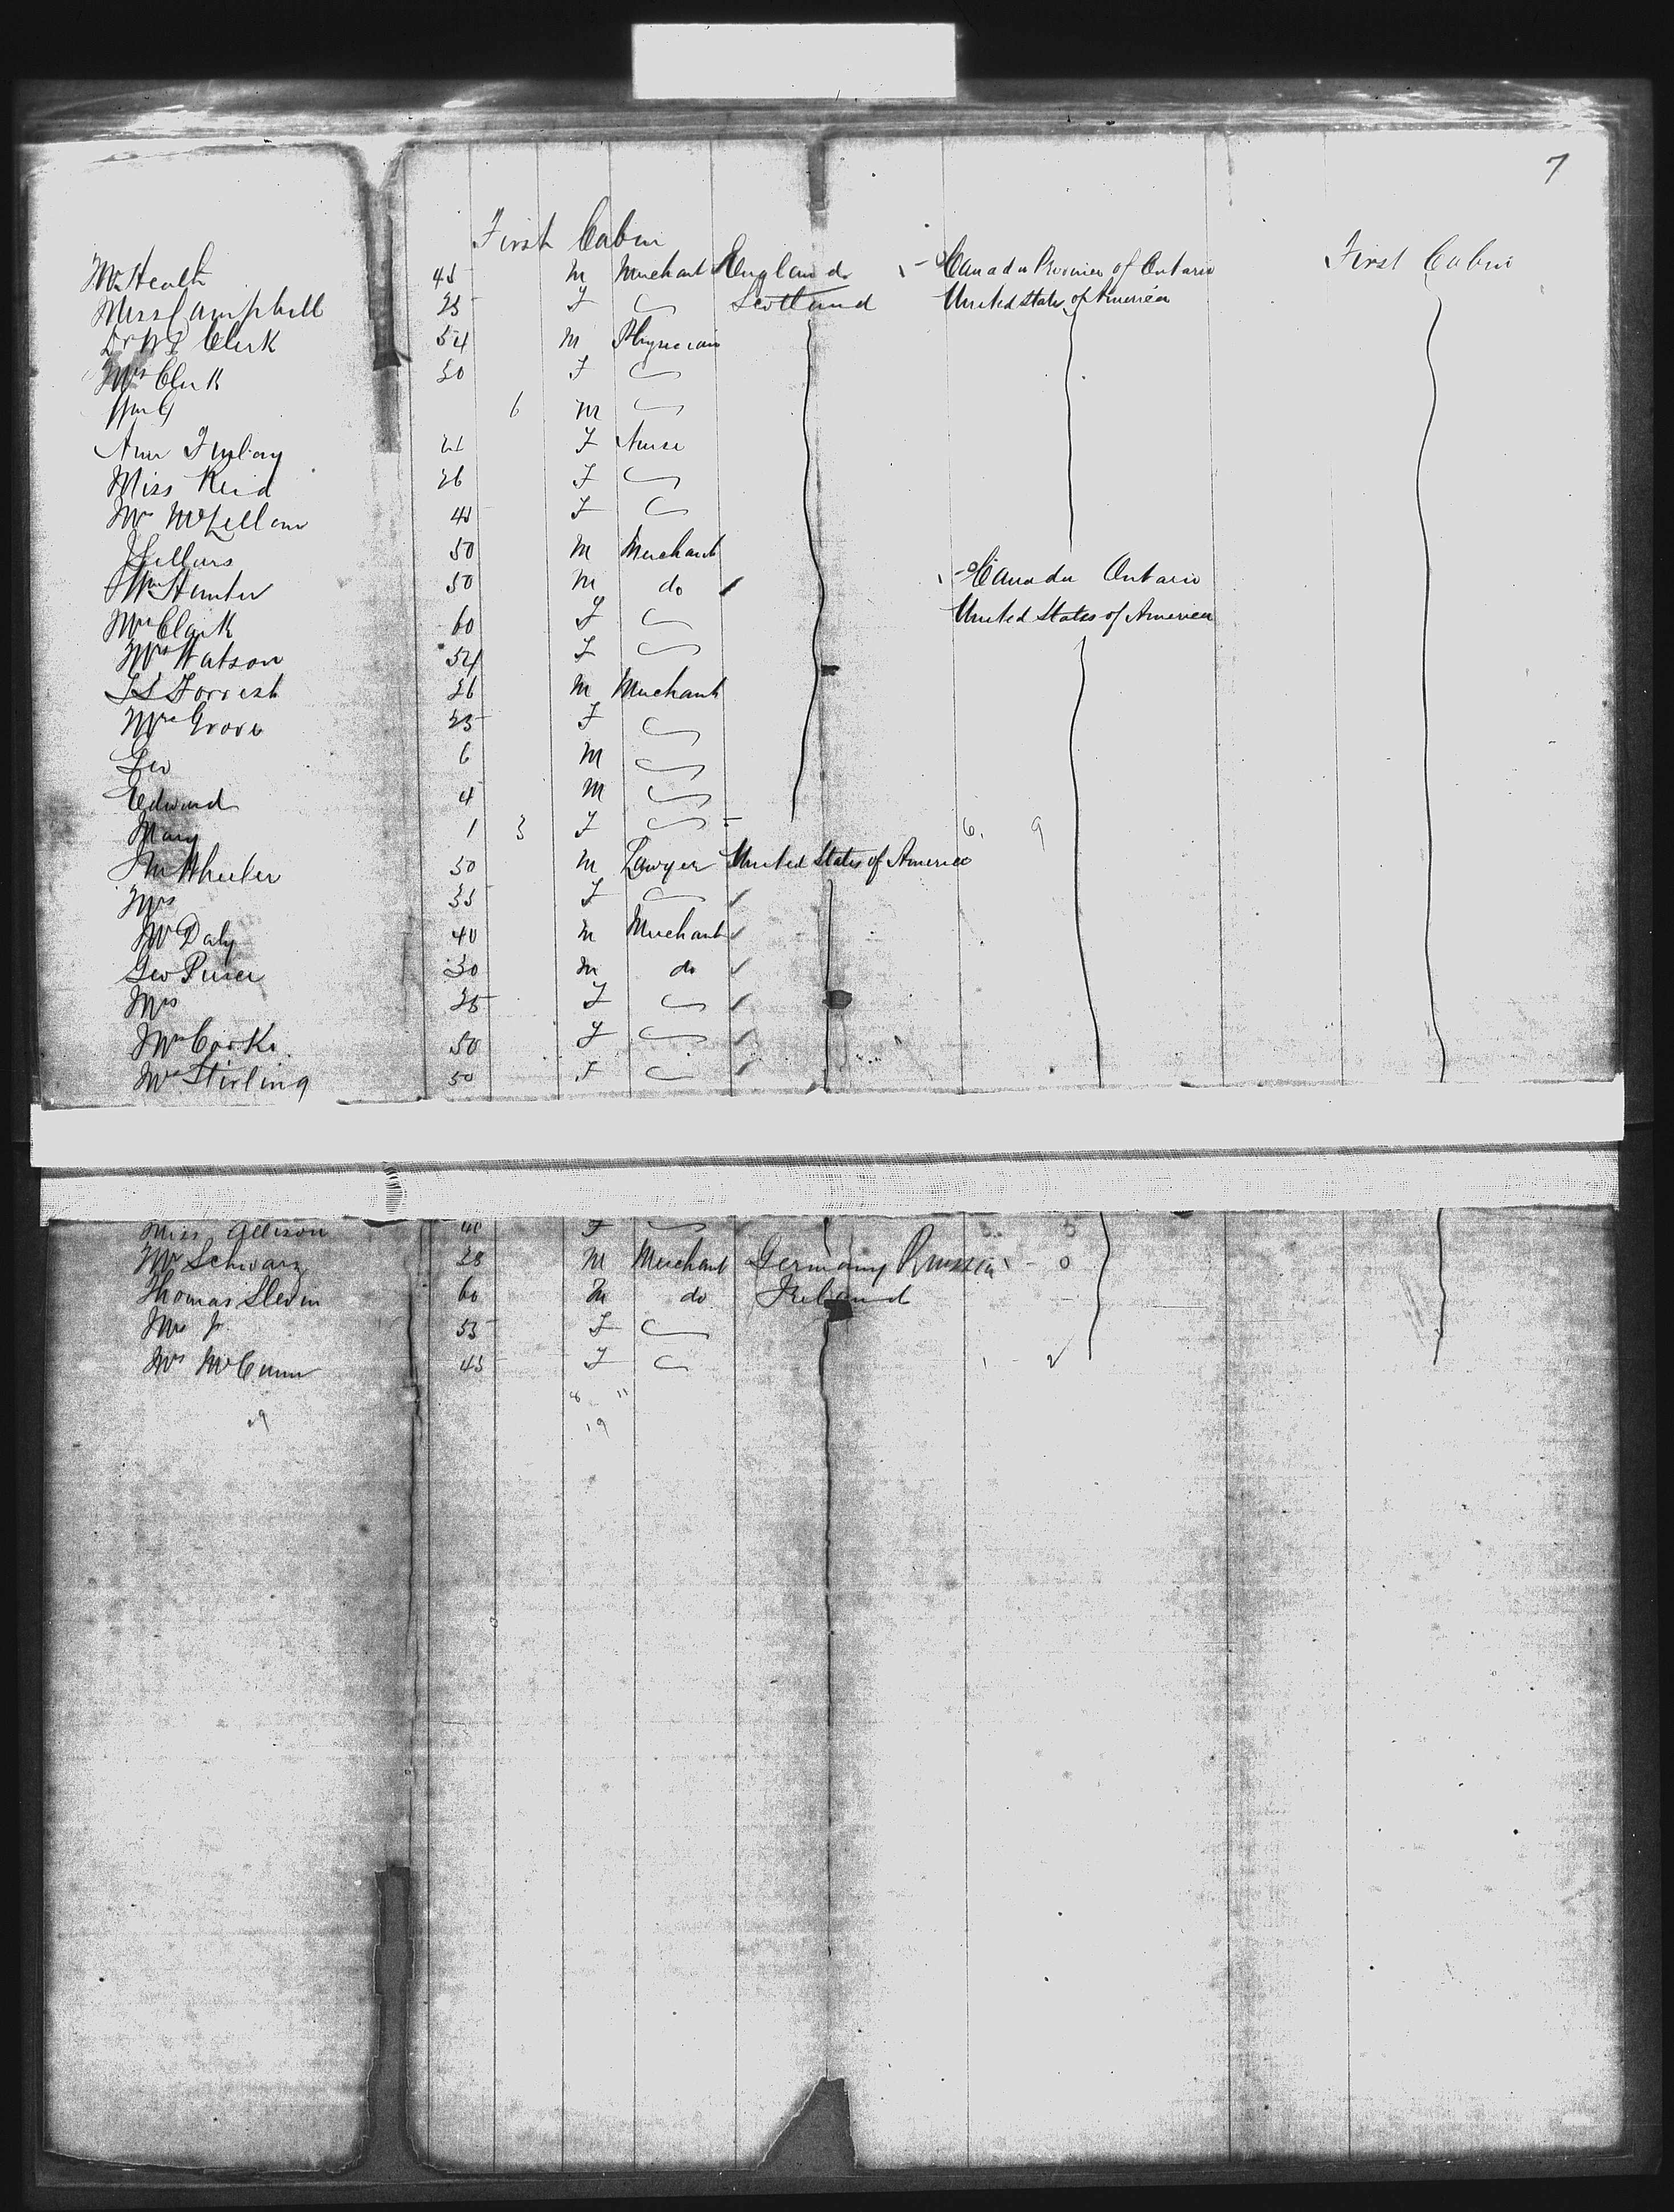 7
First Cabin
First Cabin
Mr Heath 45 M Merchant England Canada Province of Ontario
Miss Campbell 23 F Scotland United States of America
Dr W Clerk 54 M Physician
Mrs Clerk 30 F
Wm G 6 M
Ann Finlay 21 F Nurse
Miss Reid 26 F
Mrs McLellan 45 F
J Sellars 50 M Merchant
Wm Hunter 50 M do Canada Ontario
Mrs Clark 60 F United States of America
Mrs Watson 54 F
Forrest 26 M Merchant
Mrs Grove 25 F
Geo 6 M
Edward 4 M
Mary 1 3 F 6. 9
Wheeler 50 M Lawyer United States of America
Mrs 35 F
Mr Daly 40 M Merchant
Geo 30 M do
Mrs 25 F
Mrs Cooke 50 F
Mrs Stirling 50 F
Miss Allison 40 F 3. 3
Mr Schwarz 28 M Merchant Germany Prussia 0
Thomas Slevin 60 M do Ireland
Mrs 55 F
Mrs McCunn 45 F
8 11
29 19